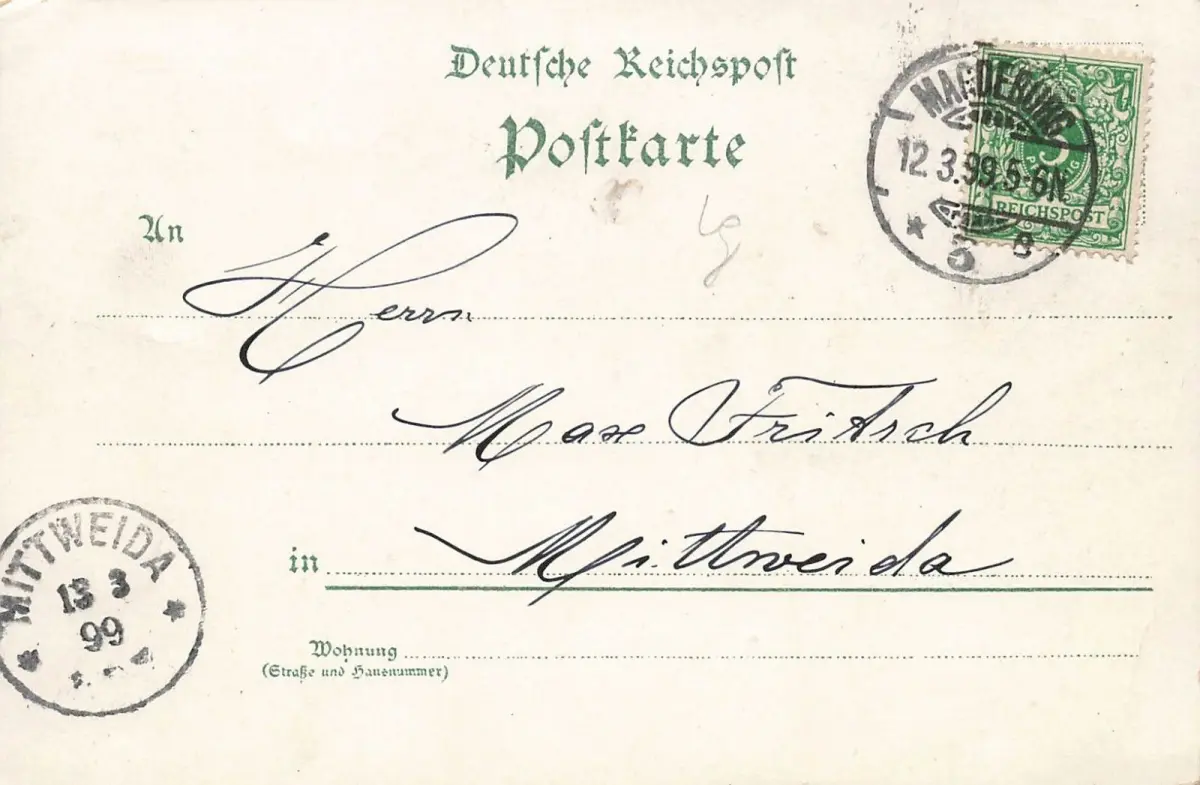 Deutsche Reichspost
Postkarte
MAGDEBURG
12.3.99.5-6N
* 5 B
5
PFENNIG
REICHSPOST
An
Herrn
Max Fritsch
in Mittweida
Wohnung
(Straße und Hausnummer)
MITTWEIDA
13 3
99